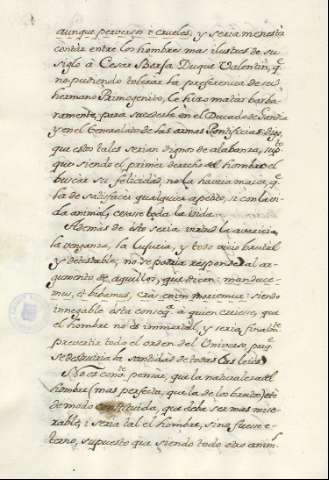 aunque perversos e crueles, y seria menester
contar entre los hombres mas ilustres de su
siglo à Cesar Borja Duque Valentin, q.e
no pudiendo tolerar la preferencia de su
hermano Primogenito, le hizo matar barba-
ramente, para sucederle en el Ducado de Gandia
y en el Generalato de las armas Pontificias: digo,
que estos tales serian dignos de alabanza, sup.to
que siendo el primer derecho del hombre el
buscar su felicidad, no la havria mayor, q.e
la de satisfacer qualquier apetito, si con la vi-
da animal, cesase toda la vida.
Además de esto seria virtud la avaricia,
la venganza, la luxuria, y todo vicio bestial
y detestable; no se podria responder al ar-
gumento de aquellos, que dicen: manduce-
mus, et bibamus, cras enim moriemur: siendo
innegable esta conseq.a à quien creiese, que
el hombre no es immortal, y seria final.te
pervertir todo el orden del Universo, pues
se destruiria la santidad de todas las leies.
No es conv.te pensar, que la naturaleza del
hombre (mas perfecta, que la de los brutos) esté
de modo constituida, que deba ser mas mise-
rable; i seria tal el hombre, si no fuese e-
terno, supuesto que siendo todo otro anim.